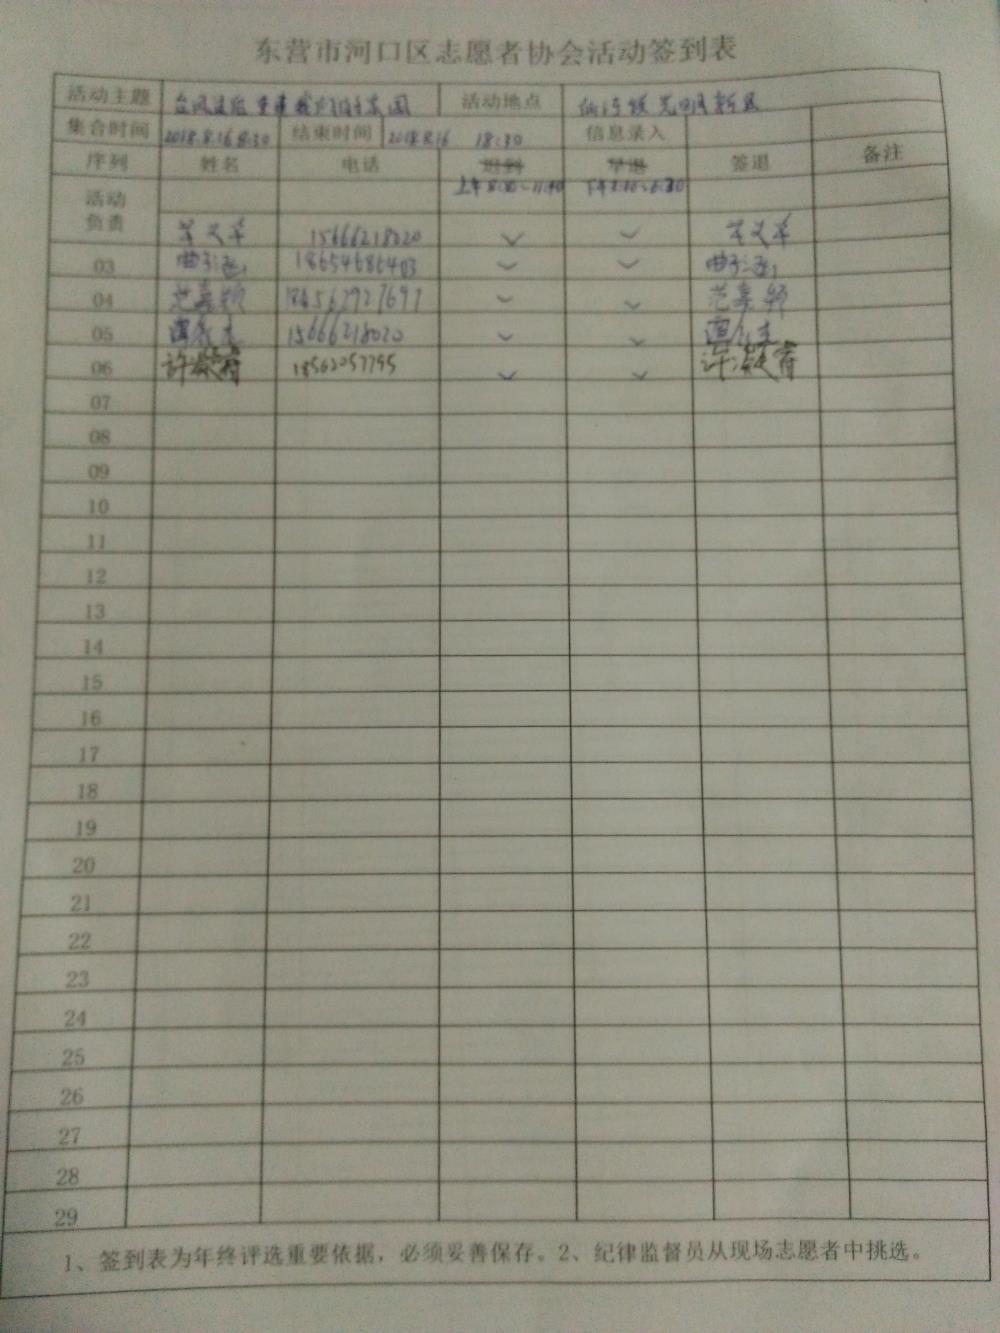 东营市河口区志愿者协会活动签到表
活动主题 台风过后 重建我们的家园 活动地点
集合时间 2018.8.16 8:30 结束时间 2018.8.16 18:30 信息录入
序列 姓名 电话 迟到 早退 签退 备注
上午8:30-11:40 下午2:10-6:30
活动
负责
15666218020
03 曲子涵 18654686403 曲子涵
04 范嘉颖 18562927697 范嘉颖
05 15666218020
06 许凝睿 18562057795 许凝睿
07
08
09
10
11
12
13
14
15
16
17
18
19
20
21
22
23
24
25
26
27
28
29
1、签到表为年终评选重要依据，必须妥善保存。2、纪律监督员从现场志愿者中挑选。